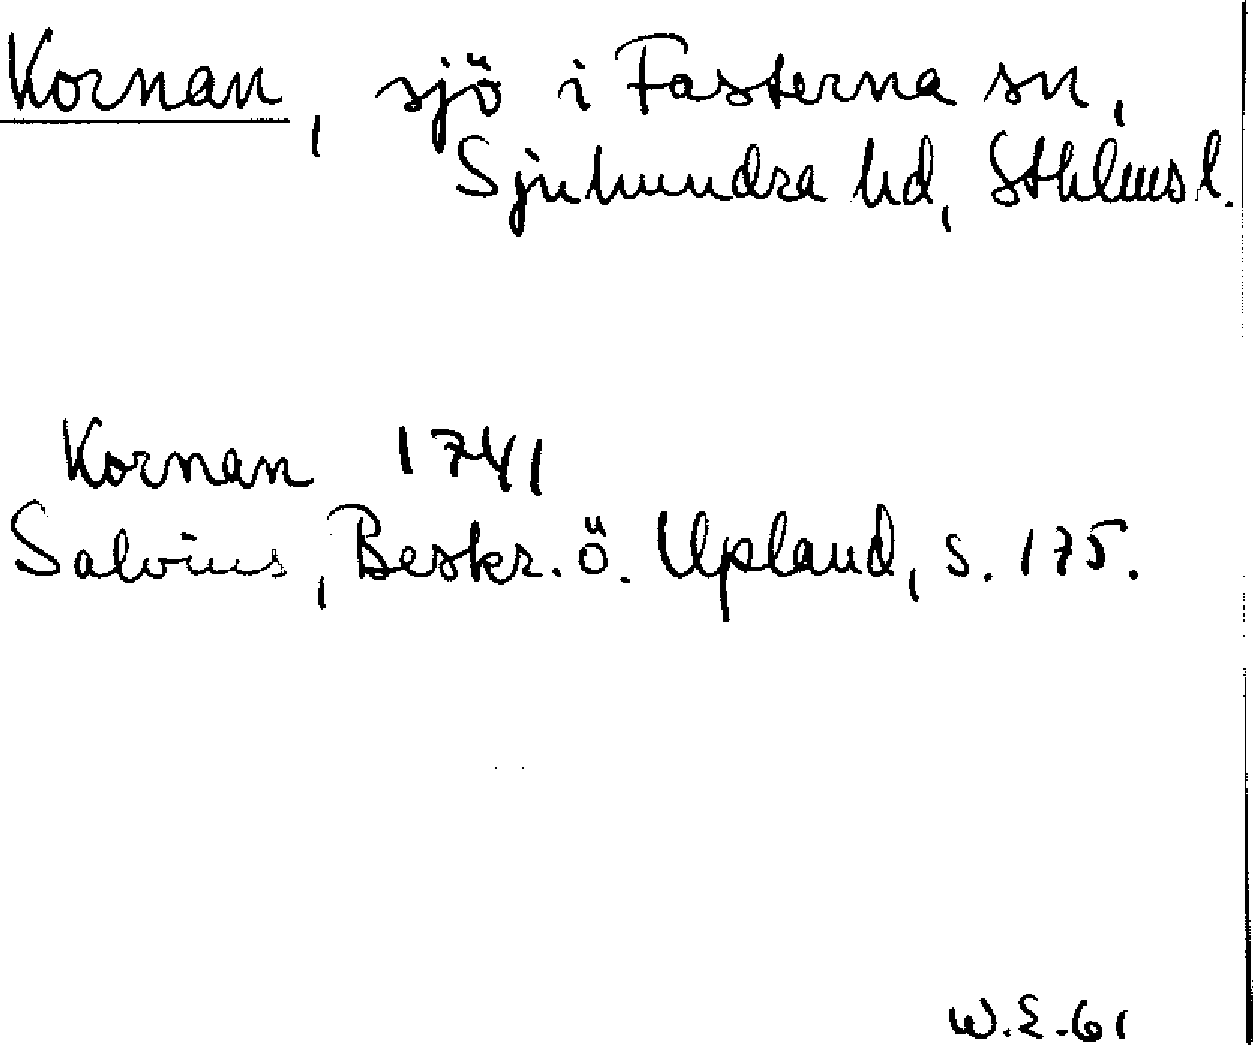 Kornan, sjö i Fasterna sn,
Sjuhundra hd, Sthlms l.
Kornan 1741
Salvius, Beskr. ö. Upland, s. 175.
W.E.-61